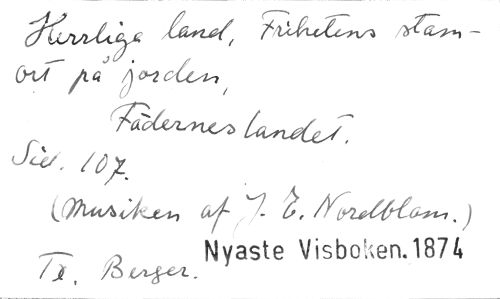 Herrliga land, Frihetens stam-
ort på jorden,
Fäderneslandet.
Sid. 107.
(Musiken af J. E. Nordblom.)
Nyaste Visboken. 1874
Te. Berger.